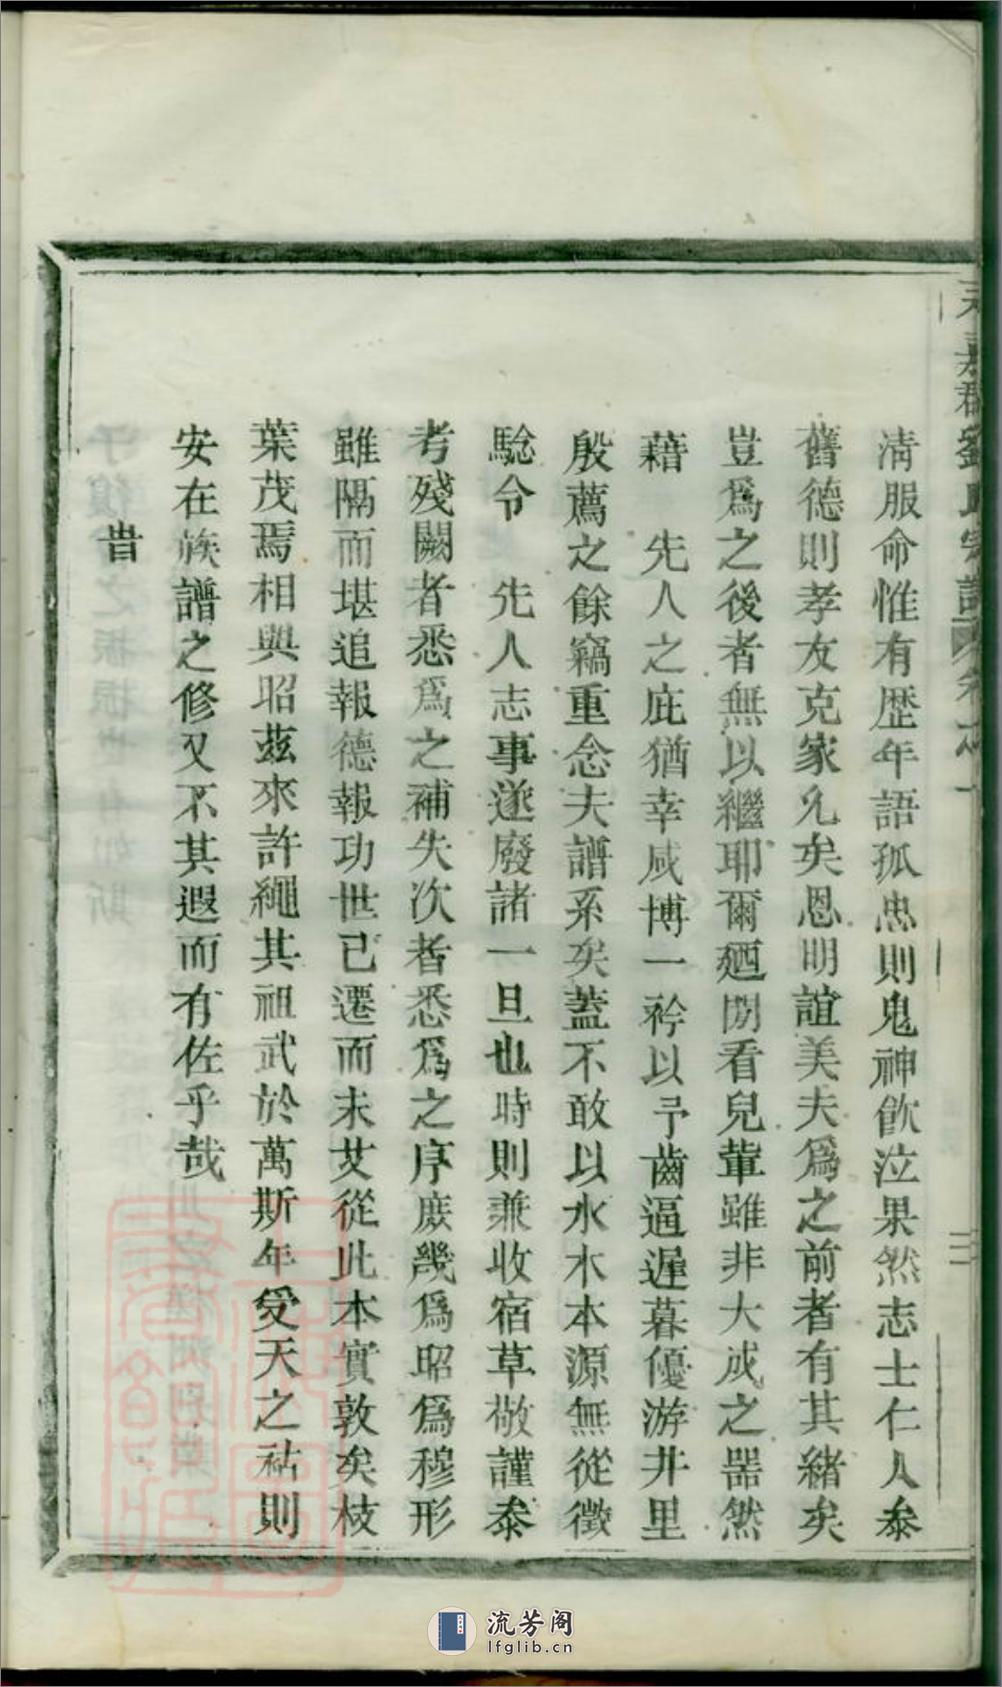 清服命惟有歷年語孤忠則鬼神飮泣果然志士仁人叅
舊德則孝友克家允矣恩明誼美夫爲之前者有其緒矣
豈爲之後者無以繼耶爾廼閒看兒輩雖非大成之器然
藉 先人之庇猶幸咸博一衿以予齒逼遲暮優游井里
殷薦之餘竊重念夫譜系矣蓋不敢以水木本源無從徵
騐令 先人志事遂廢諸一旦也時則兼收宿草敬謹叅
考殘闕者悉爲之補失次者悉爲之序庶幾爲昭爲穆形
雖隔而堪追報德報功世已遷而未艾從此本實敦矣枝
葉茂焉相與昭茲來許繩其祖武於萬斯年受天之祜則
安在族譜之修又不其遐而有佐乎哉
旹
嘉郡劉氏宗譜 卷之一
三
流芳阁
lfglib.cn